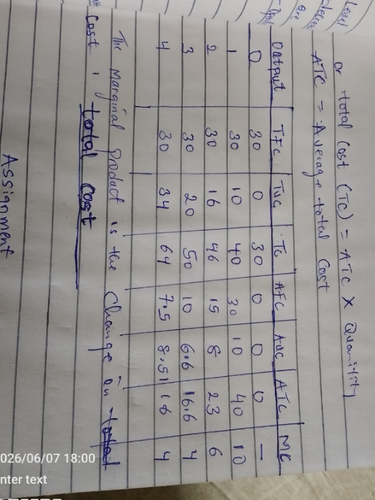 or total cost (TC) = ATC X Quantity
ATC = Average total Cost
Output TFC TVC TC AFC AVC ATC MC
0 30 0 30 0 0 0 —
1 30 10 40 30 10 40 10
2 30 16 46 15 8 23 6
3 30 20 50 10 6.6 16.6 4
4 30 34 64 7.5 8.51 16 4
The marginal product is the change in total
cost , total cost
Assignment
2026/06/07 18:00
enter text